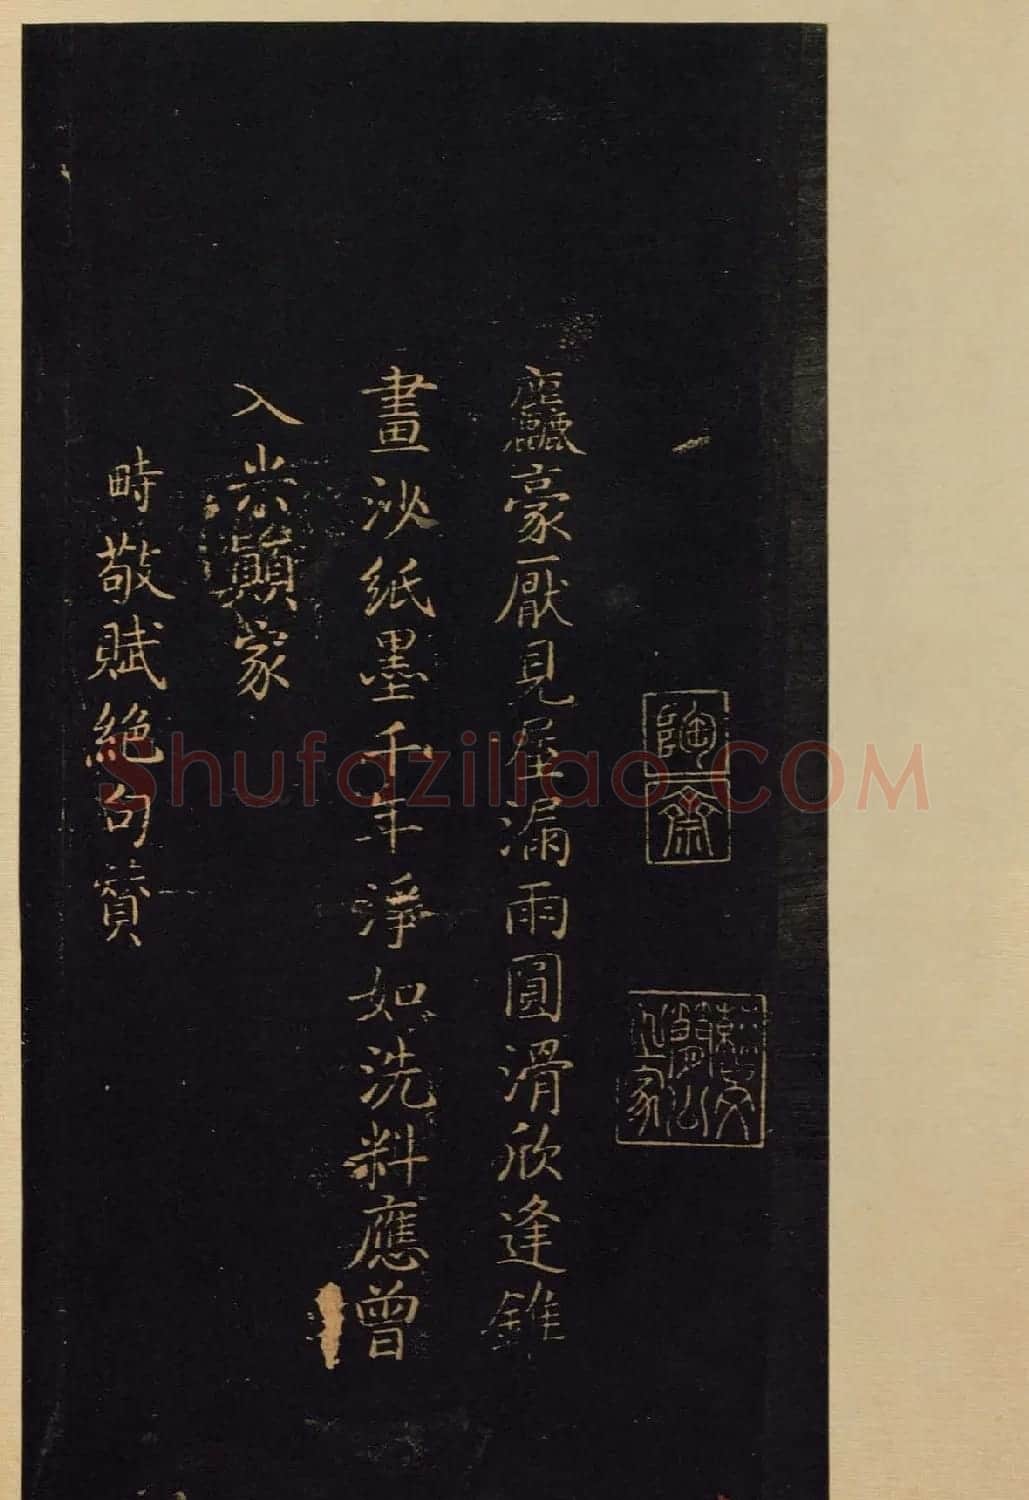 陶齋
麤豪厭見屋漏雨圓滑欣逢錐
畫沙紙墨千年淨如洗料應曾
入米顛家
畤敬賦絕句贊
Shufaziliao.COM